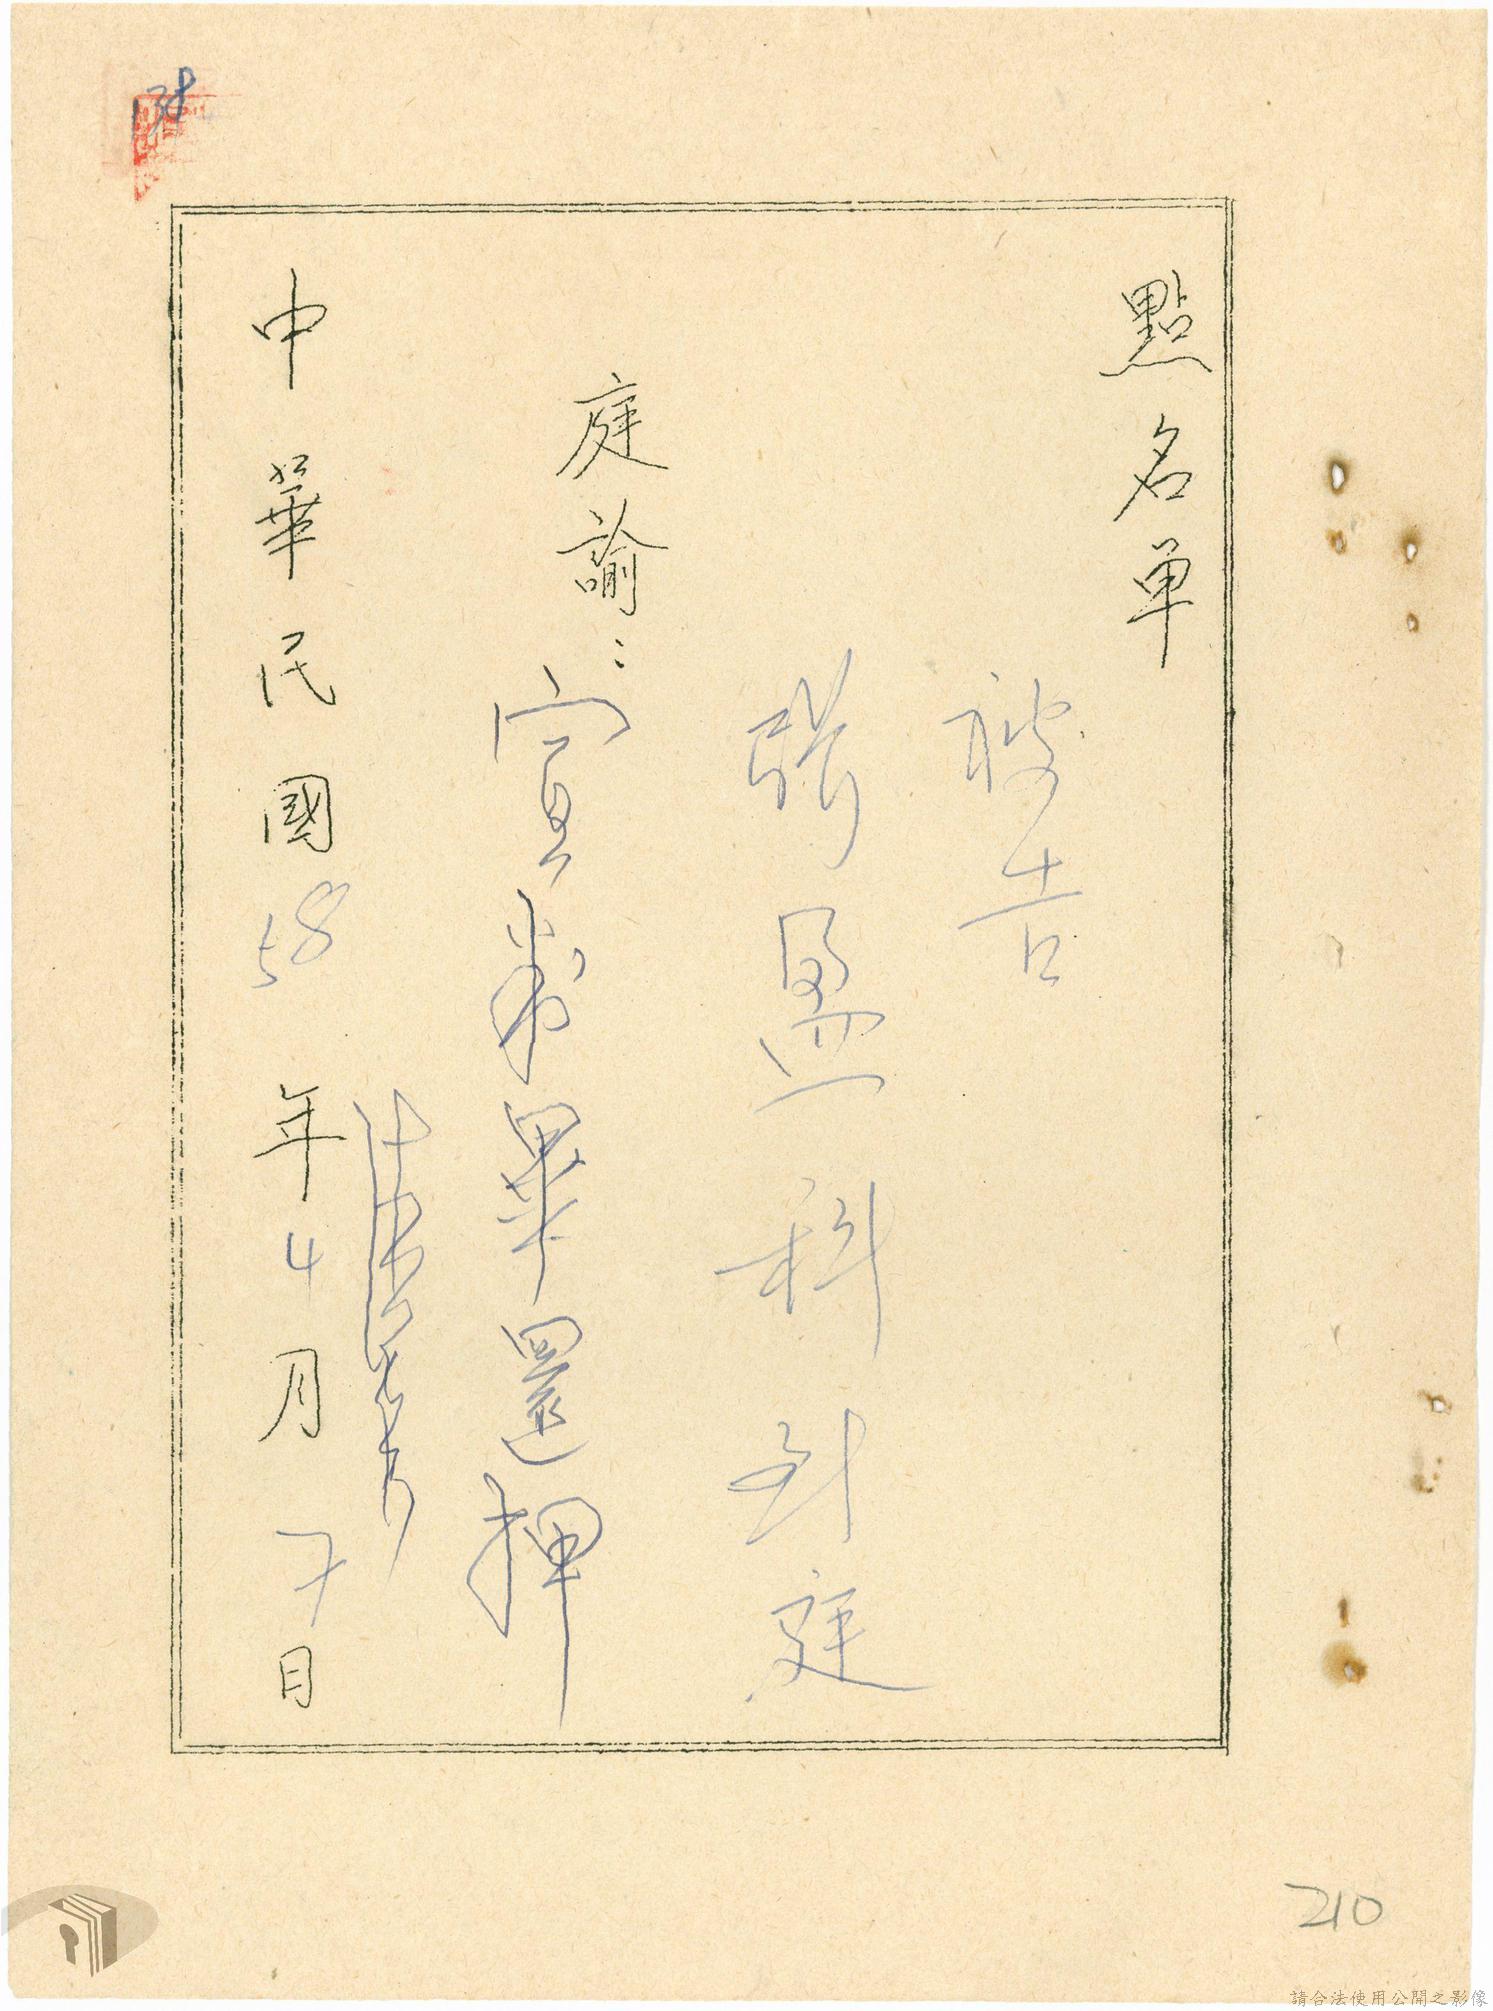 138
點名單
被告
張盈科到庭
庭諭：宣判畢還押
中華民國58年4月7日
210
請合法使用公開之影像